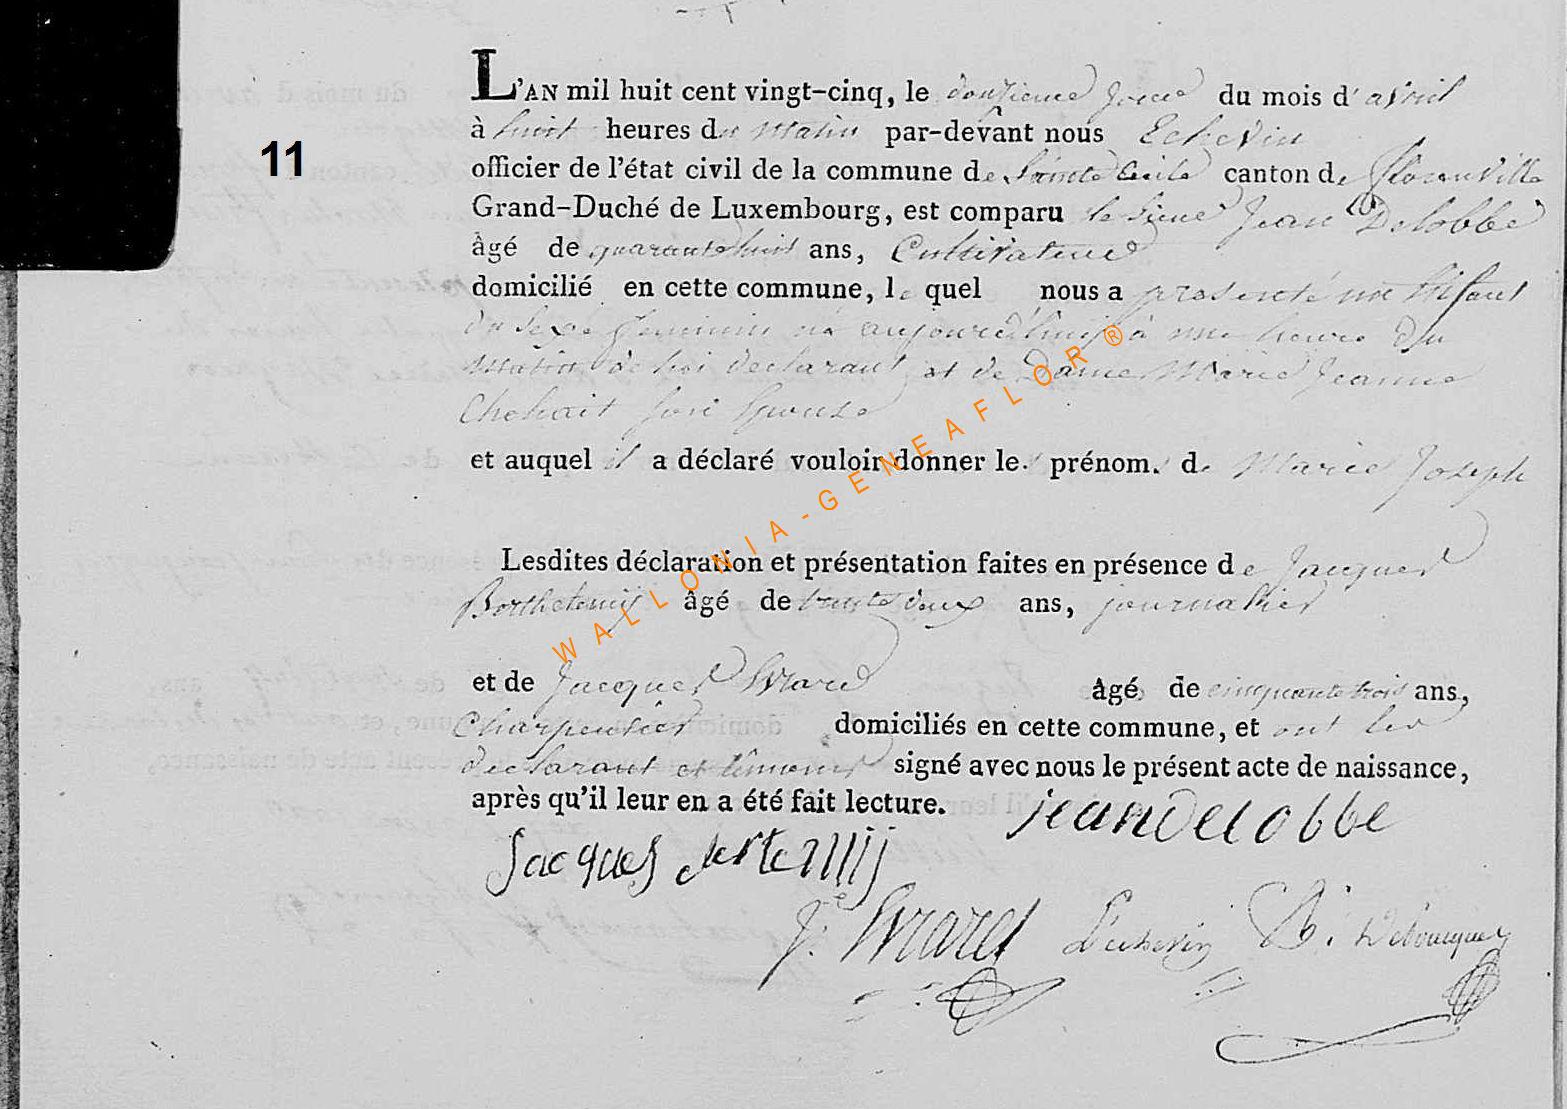 L'AN mil huit cent vingt-cinq, le douzieme jour du mois d'avril
à huit heures du matin par-devant nous Echevin
11
officier de l'état civil de la commune de Sainte Cecile canton de Florenville
Grand-Duché de Luxembourg, est comparu le sieur Jean Delobbe
âgé de quarante huit ans, Cultivateur
domicilié en cette commune, le quel nous a presenté un Enfant
du sexe feminin né aujourd'huij à une heure du
matin de lui declarant et de Dame Marie Jeanne
son Epouse
et auquel il a déclaré vouloir donner les prénoms de Marie Joseph
WALLONIA-GENEAFLOR®
Lesdites déclaration et présentation faites en présence de Jacques
âgé de trente deux ans, journalier
et de Jacques Evrard âgé de cinquante trois ans,
Charpentier domiciliés en cette commune, et ont les
declarant et temoins signé avec nous le présent acte de naissance,
après qu'il leur en a été fait lecture. jean Delobbe
Jacques
J. Evrard L'echevin